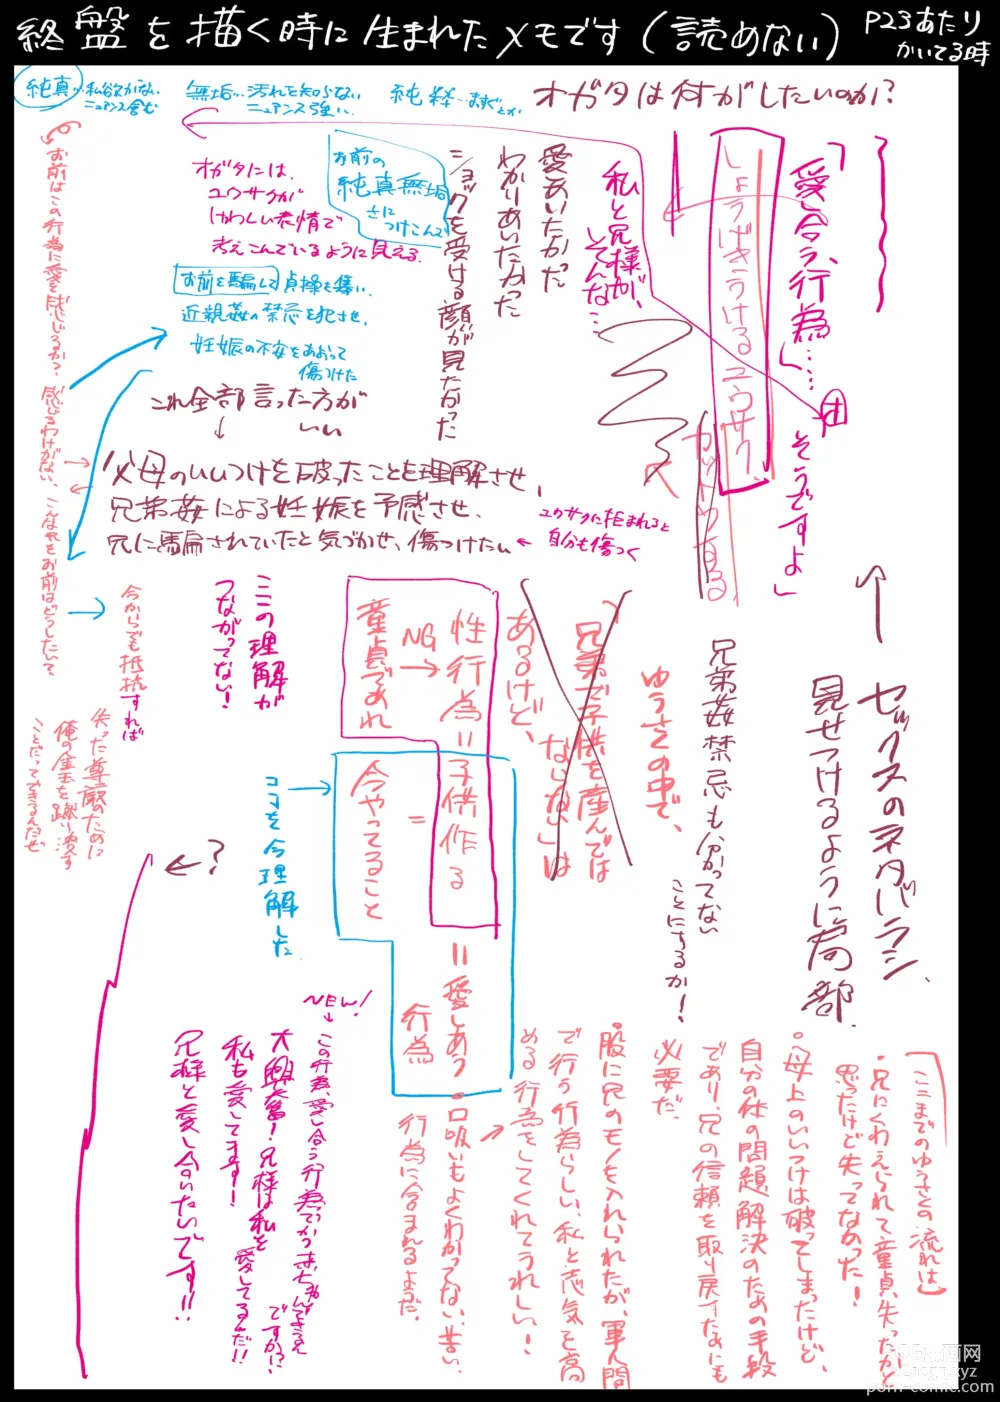 終盤を描く時に生まれたメモです(読めない)
P23あたり
かいてる時
純真…私欲がない
ニュアンス含む
無垢…汚れを知らない
ニュアンス強い…
純粋…まずとか
オガタは何がしたいのか?
「愛し合う、行為」……
そうですよ」
しょうげきうけるユウサク、
カットウする
私と兄様が、
そんな…
愛あいたかった
わかりあいたかった
ショックを受ける顔が見たかった
お前の
純真無垢
さに
つけこんで
オガタには、
ユウサクが
けわしい表情で
考えこんでいるように見える。
お前を騙して貞操を奪い、
近親姦の禁忌を犯させ、
妊娠の不安をあおって
傷つけた
これ全部言った方が
いい
↓
父母のいいつけを破ったことを理解させ、
兄弟姦による妊娠を予感させ、
兄に騙されていたと気づかせ、傷つけたい
←ユウサクに拒まれると
自分も傷つく
お前はこの行為に愛を感じるか?
感じるわけがない、こんな事をお前はどうしたいて
今からでも抵抗すれば
失った尊厳のために
俺の金玉を蹴り潰す
ことだってできるんだぜ
←?
↑
セックスのネタバラシ、
見せつけるように局部、
兄弟姦禁忌も分かってない
ことにするか!
ゆうさくの中で、
「兄弟で子供を産んでは
ないない」は
あるけど、
性行為=子供作る
NG→
童貞であれ
=
今やってること
=愛しあう
行為
ここの理解が
つながってない!
ココを今理解した→
NEW!
↓
この行為、愛し合う行為でかつ赤ちゃんできる
ですか!?
大興奮!兄様は私を
愛してるんだ!!
私も愛してます!
兄様と愛し合いたいです!!
[ここまでのゆうさくの流れは]
・兄にくわえられて童貞失ったかと
思ったけど失ってなかった!
・母上のいいつけは破ってしまったけど、
自分の体の問題解決のための手段
であり、兄の信頼を取り戻すためにも
必要だ、
・股に兄のモノを入れられたが、軍人間
で行う行為らしい、私と志気を高
める行為をしてくれてうれしい!
・口吸いもよくわかってない、苦い、
行為に含まれるようだ、
porn-comic.com